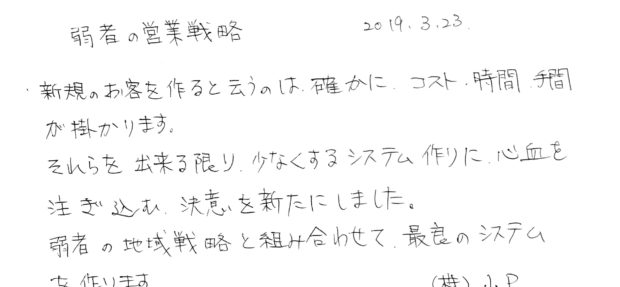 弱者の営業戦略 2019.3.23.
・新規のお客を作ると云うのは、確かに、コスト・時間・手間
が掛かります。
それらを出来る限り、少なくするシステム作りに、心血を
注ぎ込む、決意を新たにしました。
弱者の地域戦略と組み合わせて、最良のシステム
を作ります (株)小P